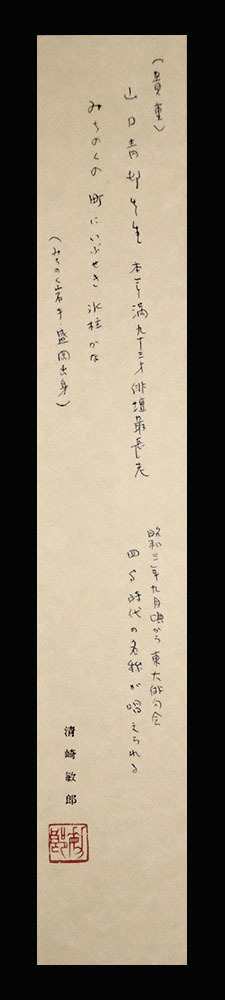 (貴重)
山口青邨先生 本年満九十三才 俳壇最長老
みちのくの町にいぶせき氷柱かな
(みちのく岩手・盛岡出身)
昭和三年九月頃から東大俳句会
四S時代の名称が唱えられる
清崎敏郎
敏郎